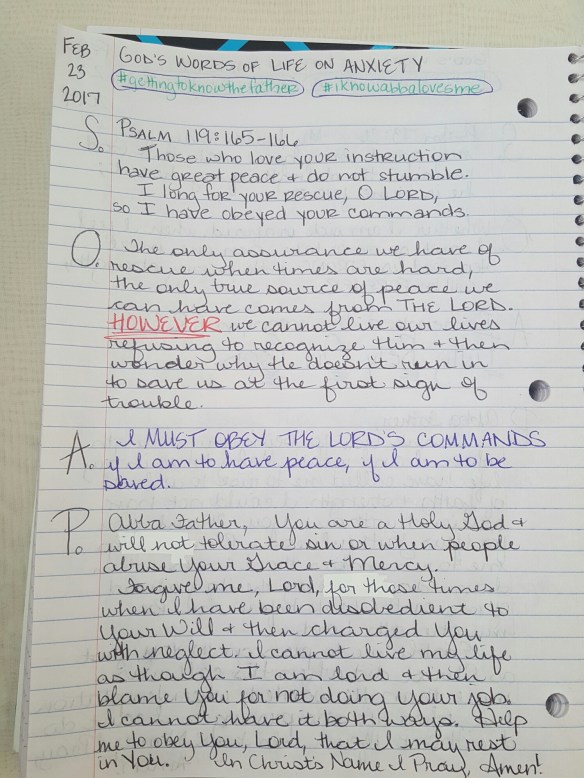 FEB
23
2017
GOD'S WORDS OF LIFE ON ANXIETY
#gettingtoknowthefather #iknowabbalovesme
S. PSALM 119:165-166
Those who love your instruction
have great peace + do not stumble.
I long for your rescue, O LORD,
so I have obeyed your commands.
O. The only assurance we have of
rescue when times are hard,
the only true source of peace we
can have comes from THE LORD.
HOWEVER we cannot live our lives
refusing to recognize Him + then
wonder why He doesn't run in
to save us at the first sign of
trouble.
A. I MUST OBEY THE LORD'S COMMANDS
if I am to have peace, if I am to be
saved.
P. Abba Father, You are a Holy God +
will not tolerate sin or when people
abuse Your Grace + Mercy.
Forgive me, Lord, for those times
when I have been disobedient to
Your Will + then charged You
with neglect. I cannot live my life
as though I am lord + then
blame You for not doing Your job.
I cannot have it both ways. Help
me to obey You, Lord, that I may rest
in You. In Christ's Name I Pray, Amen!